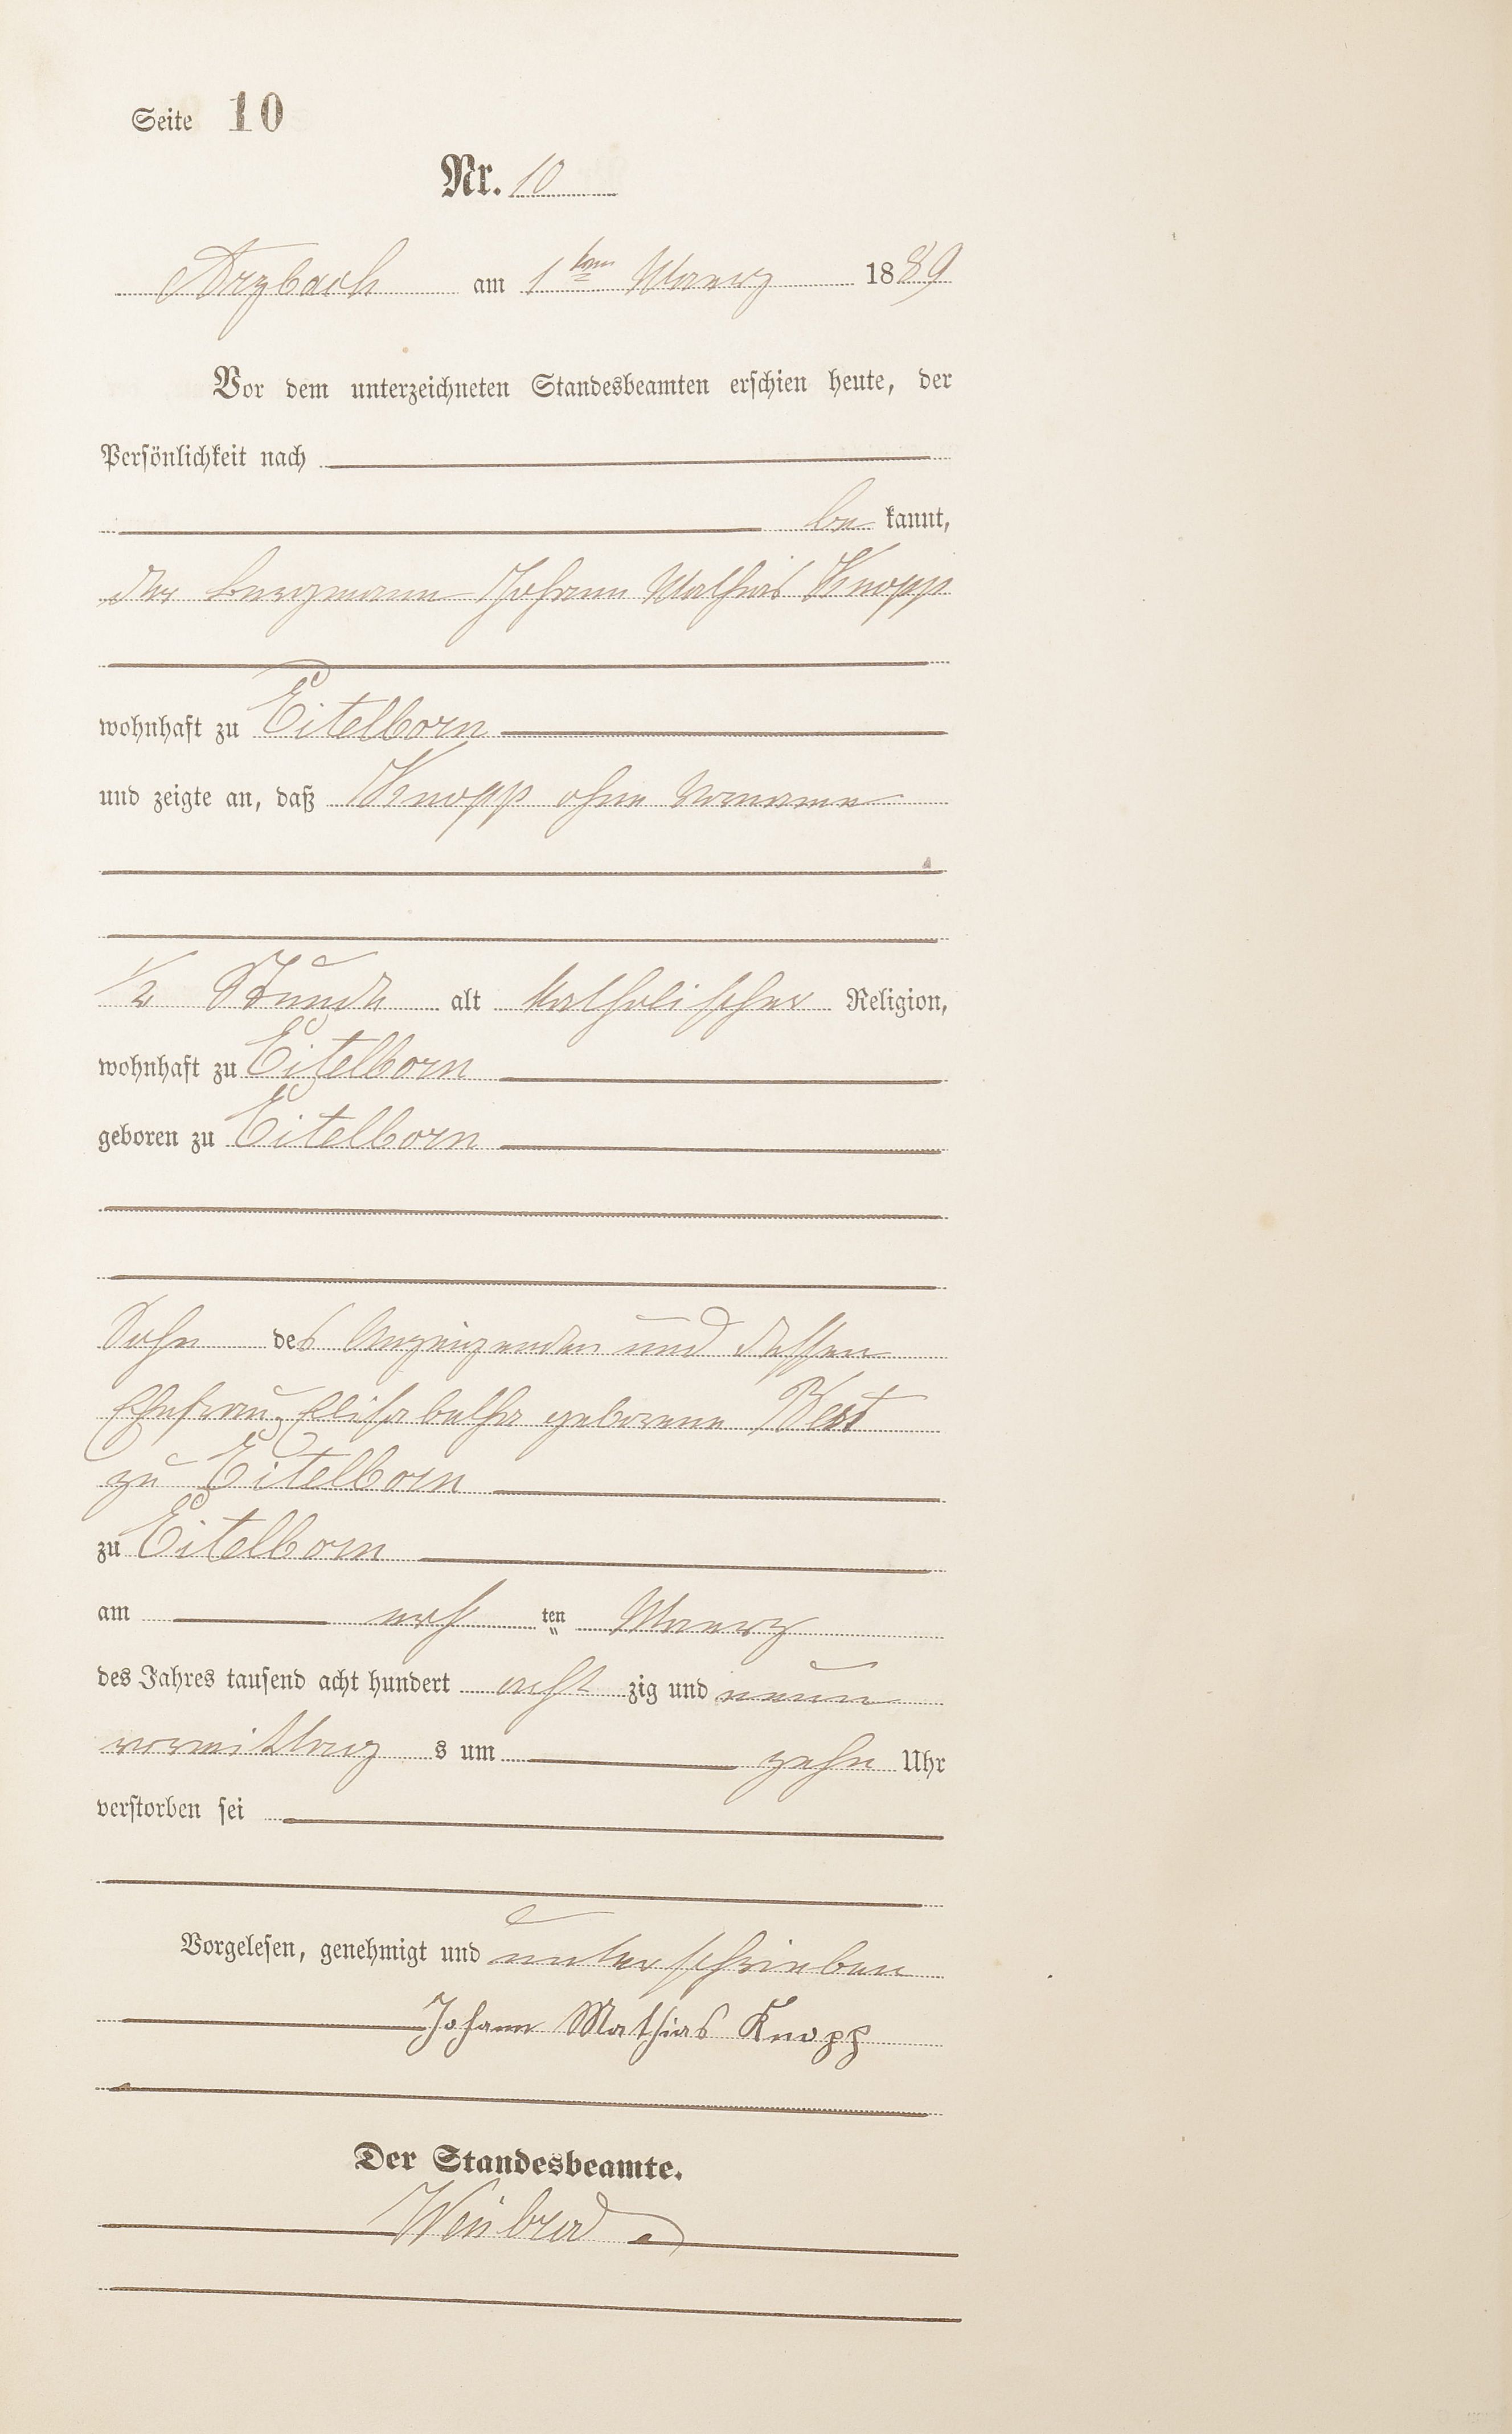 Seite 10
Nr. 10
Arzbach am 1ten Maerz 1889
Vor dem unterzeichneten Standesbeamten erschien heute, der
Persönlichkeit nach
be kannt,
der Bergmann Johann Mathias Knopp
wohnhaft zu Eitelborn
und zeigte an, daß Knopp ohne Vorname
1/2 Stunde alt katholischer Religion,
wohnhaft zu Eitelborn
geboren zu Eitelborn
Sohn des Anzeigenden und dessen
Ehefrau Elisabetha geborene Best
zu Eitelborn
zu Eitelborn
am ersten Maerz
des Jahres tausend acht hundert acht zig und neun
vormittag s um zehn Uhr
verstorben sei
Vorgelesen, genehmigt und unterschrieben
Johann Mathias Knopp
Der Standesbeamte.